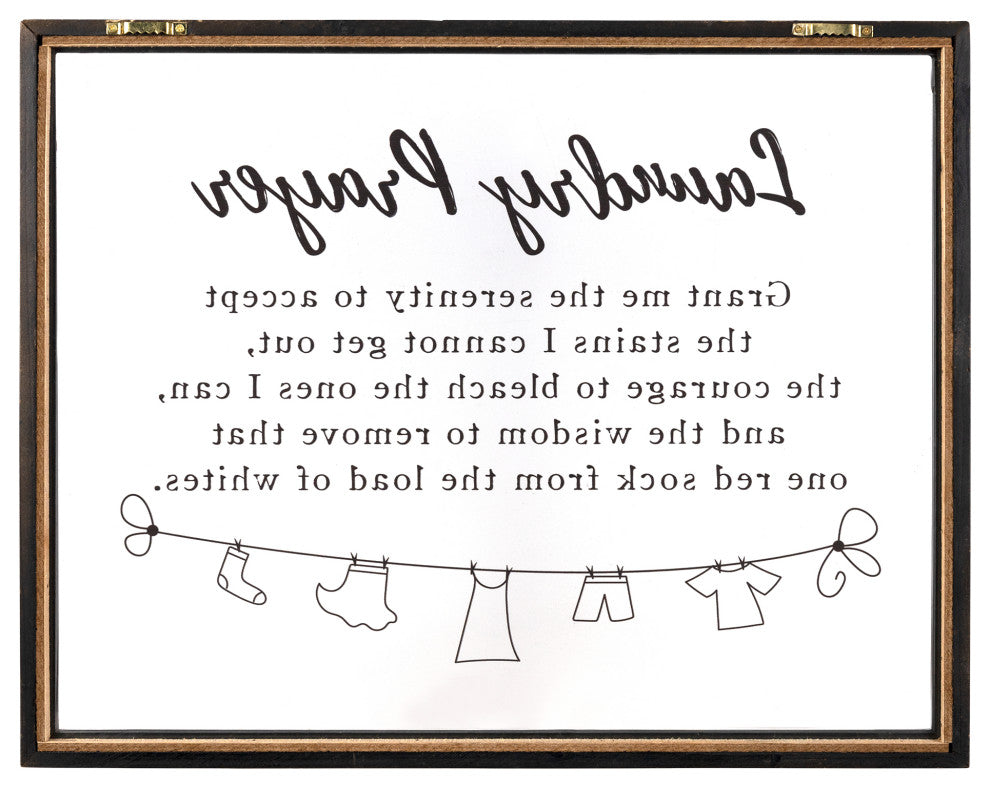 Laundry Prayer
Grant me the serenity to accept
the stains I cannot get out,
the courage to bleach the ones I can,
and the wisdom to remove that
one red sock from the load of whites.